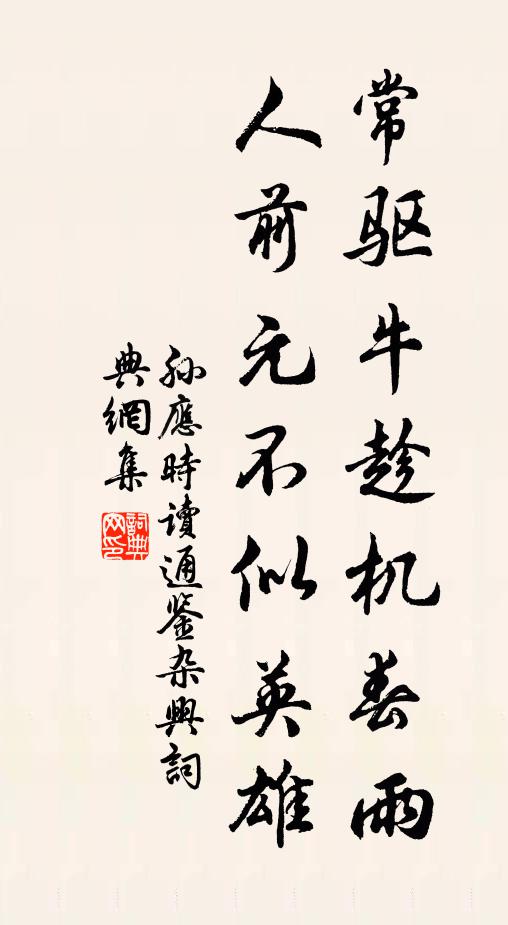 常驱牛趁机春雨
人前元不似英雄
孙應時读通鉴杂興詞
典網集
詞典
网印